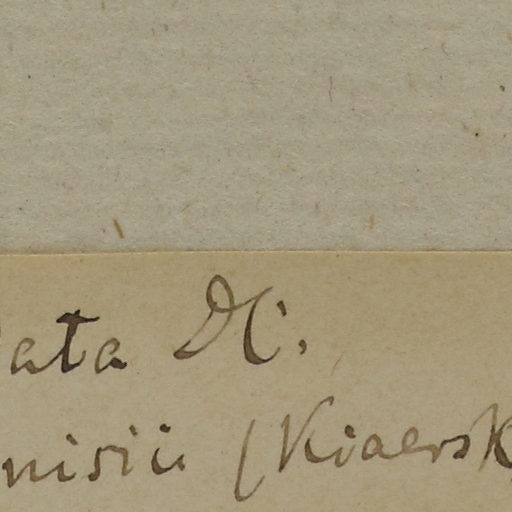 ata DC.
nisii (Kiaersk